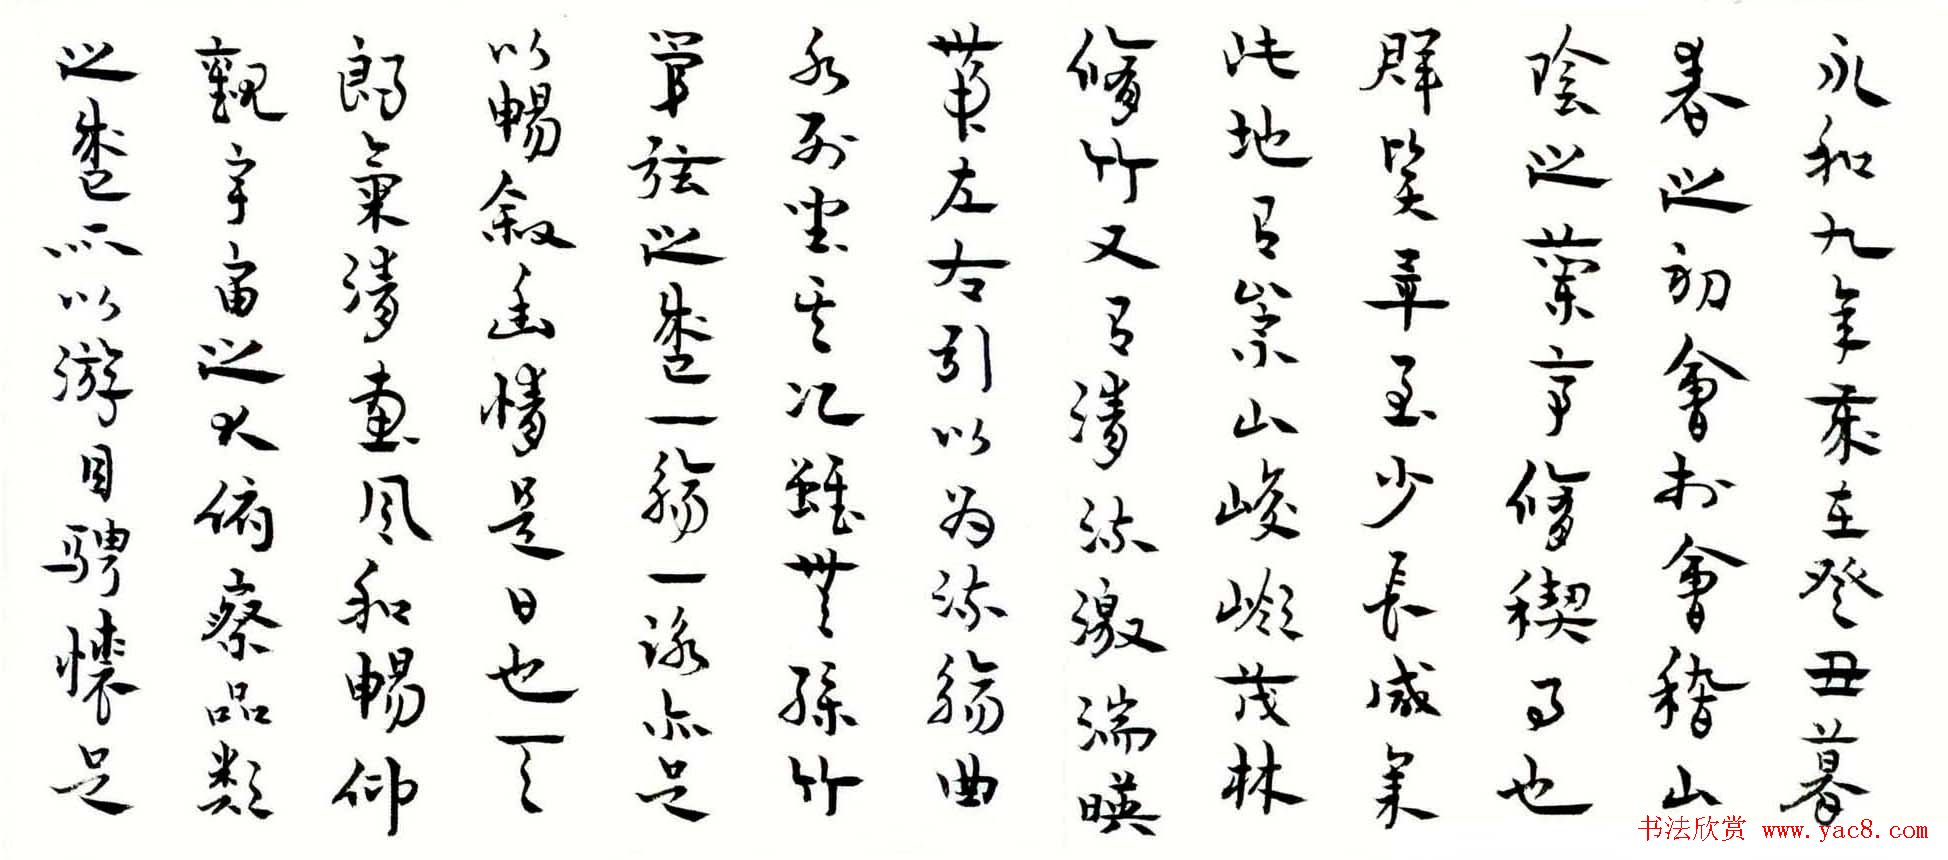 永和九年歲在癸丑暮
春之初會於會稽山
陰之蘭亭脩稧事也
群賢畢至少長咸集
此地有崇山峻嶺茂林
脩竹又有清流激湍暎
帶左右引以為流觴曲
水列坐其次雖無絲竹
管弦之盛一觴一詠亦足
以暢敘幽情是日也天
朗氣清惠風和暢仰
觀宇宙之大俯察品類
之盛所以游目騁懷足
书法欣赏 www.yac8.com